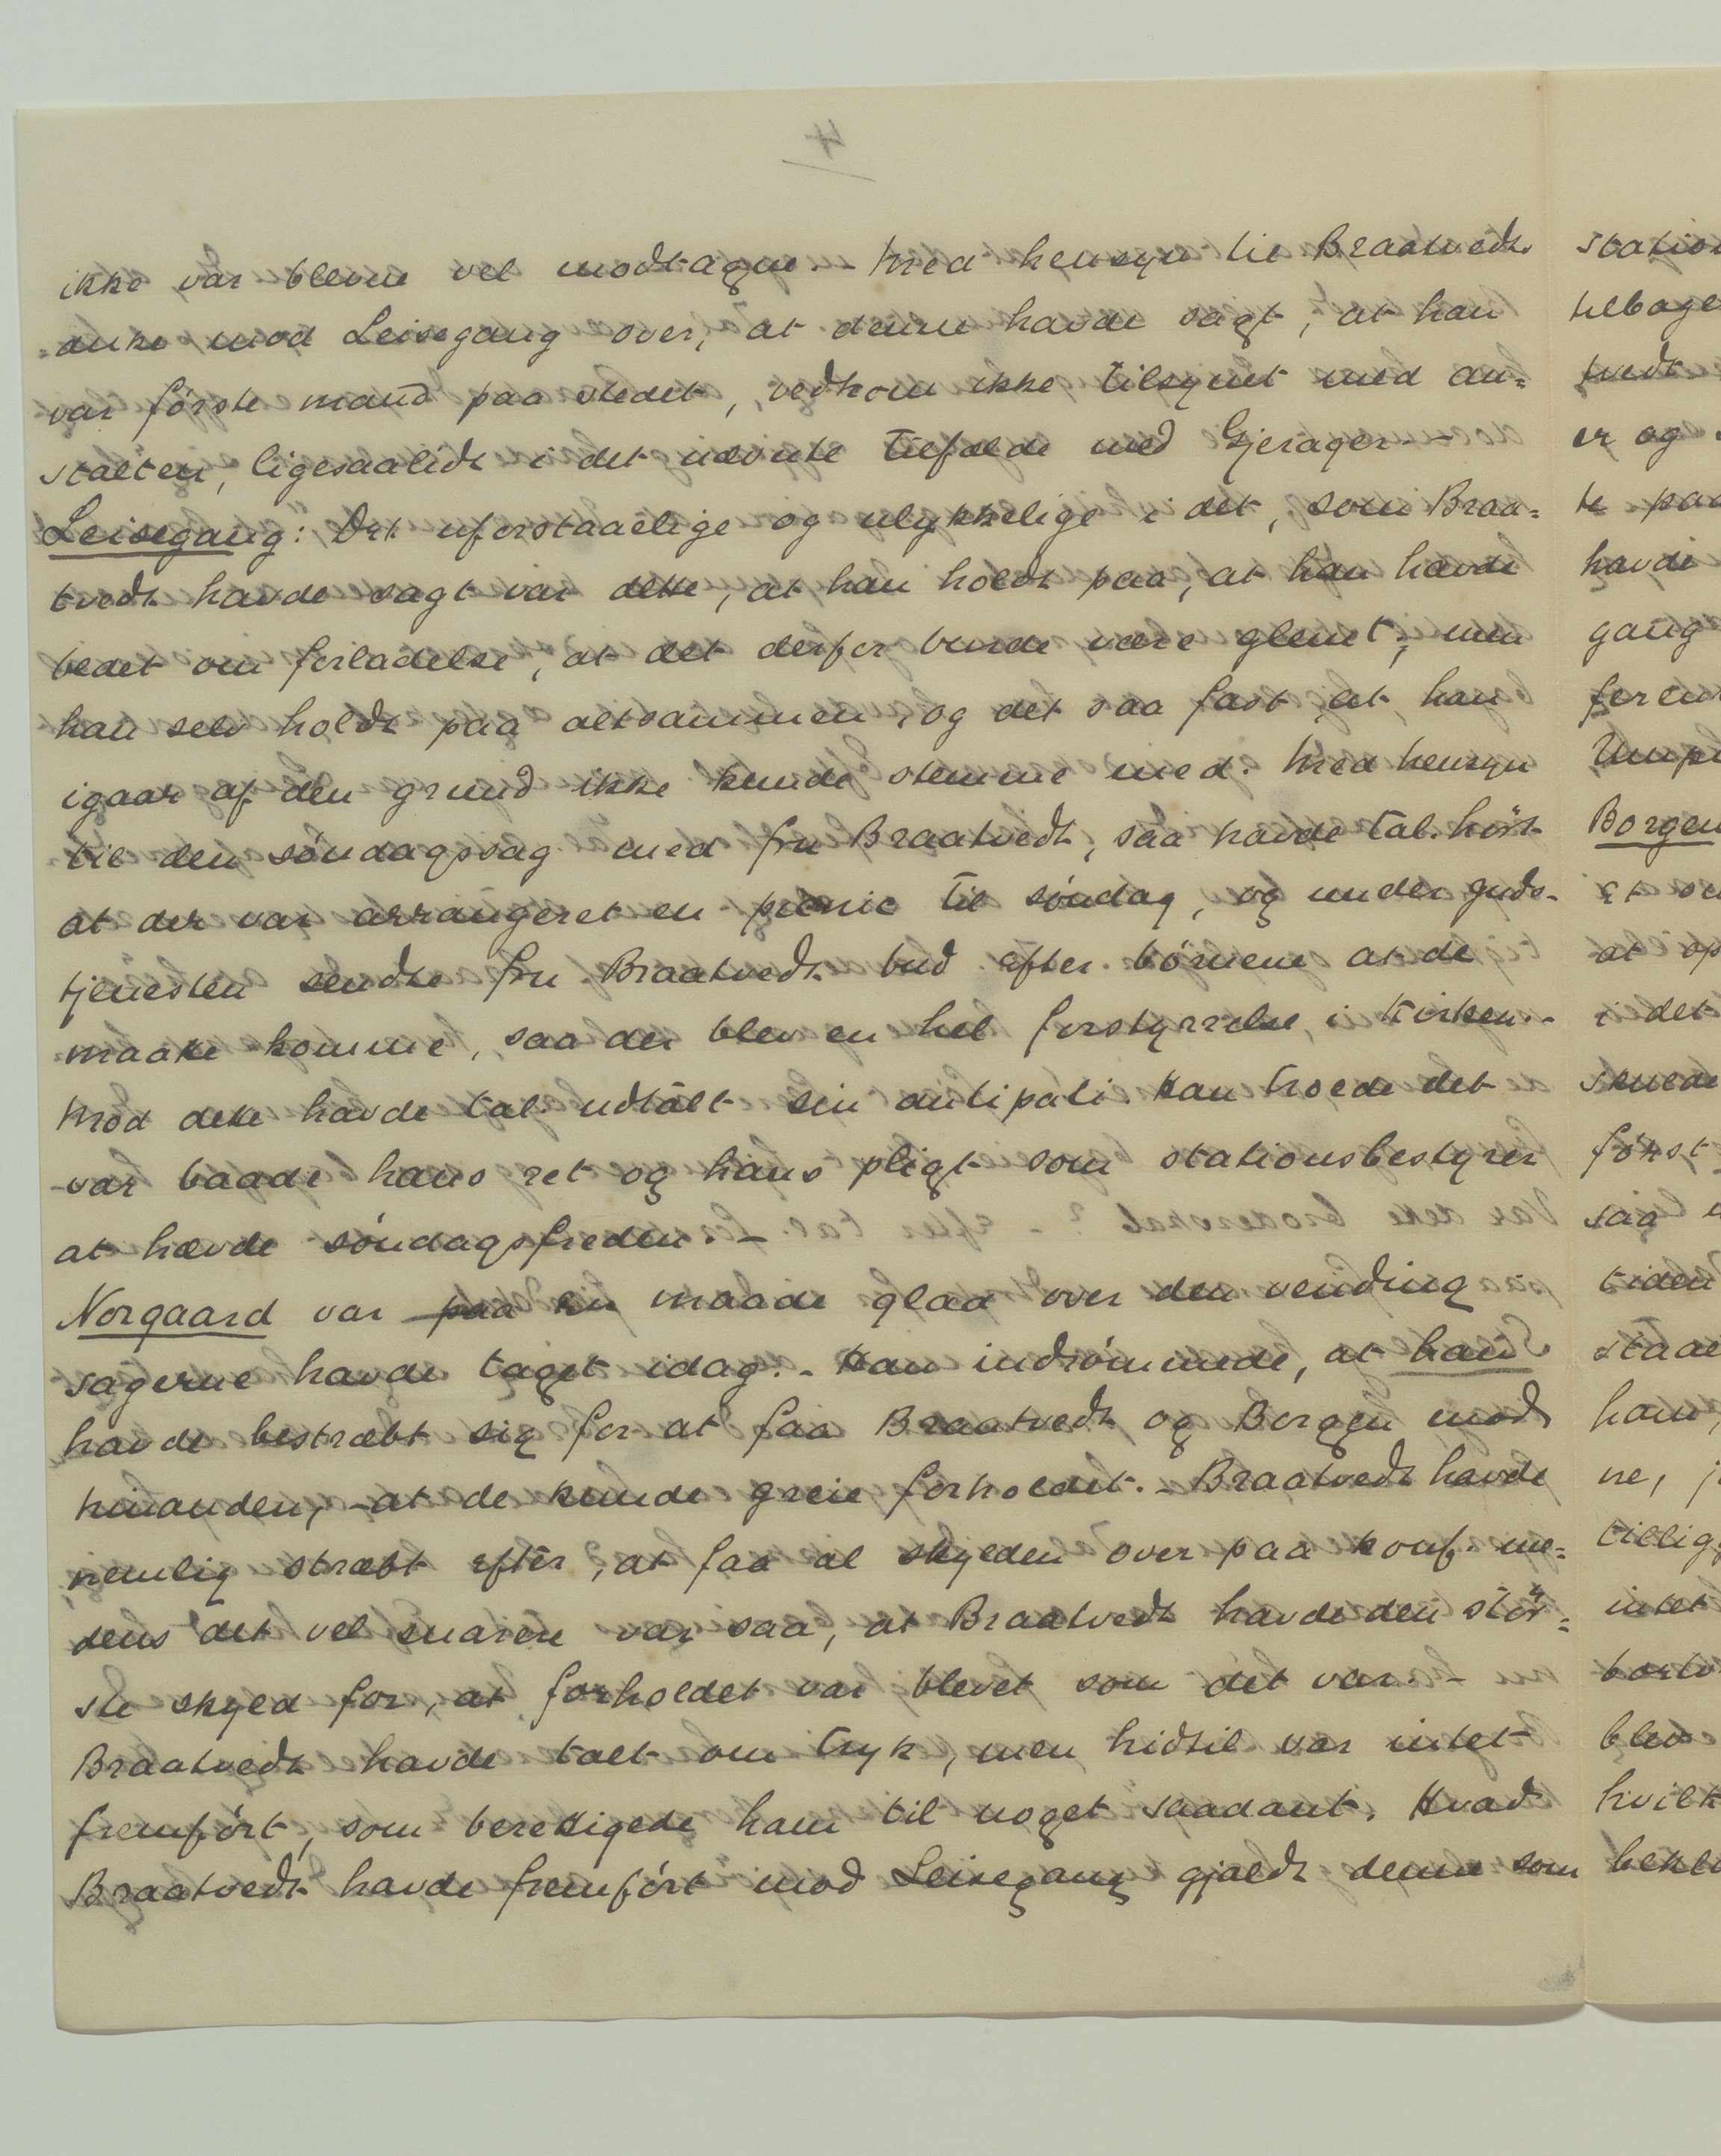 ikke var blevne vel modtagne. - Med hensyn til Braatvedts
anke mod Leisegang over, at denne havde sagt, at han
var første mand paa stedet, vedkom ikke tilsynet med an-
stalten, ligesaalidt i det nævnte tilfælde med Gjerager. -
Leisegang: Det uforstaaelige og ulykkelige i det, som Braa-
tvedt havde sagt var dette, at han holdt paa, at han havde
bedet om forladelse, at det derfor burde være glemt, men
han selv holdt paa altsammen, og det saa fast, at han
igaar af den grund ikke kunde stemme med. Med hensyn
til den søndagssag med fru Braatvedt, saa havde tal. hørt
at der var arrangeret en picnic til søndag, og under guds-
tjenesten sendte fru Braatvedt bud efter børnene at de
maatte komme, saa der blev en hel forstyrrelse i kirken. -
Mod dette havde tal. udtalt sin antipati. Han troede det
var baade hans ret og hans pligt som stationsbestyrer
at hævde søndagsfreden. -
Norgaard var paa en maade glad over den vending
sagerne havde taget idag. - Han indrømmede, at han
havde bestræbt sig for at faa Braatvedt og Borgen mod
hinanden, - at de kunde greie forholdet. - Braatvedt havde
nemlig stræbt efter, at faa al skylden over paa konf. me-
dens det vel snarere var saa, at Braatvedt havde den stør-
ste skyld for, at forholdet var blevet som det var. -
Braatvedt havde talt om tryk, men hidtil var intet
fremført, som berettigede ham til noget saadant. Hvad
Braatvedt havde fremført mod Leisegang gjaldt denne som
4
station
tilbage
tvedt
er og
te paa
havde
gang
feren
Borgen
et
at op
i det
skulde
først
saa
tiden
staae
ham,
ne,
tillig
intet
bort
blev
hvilk